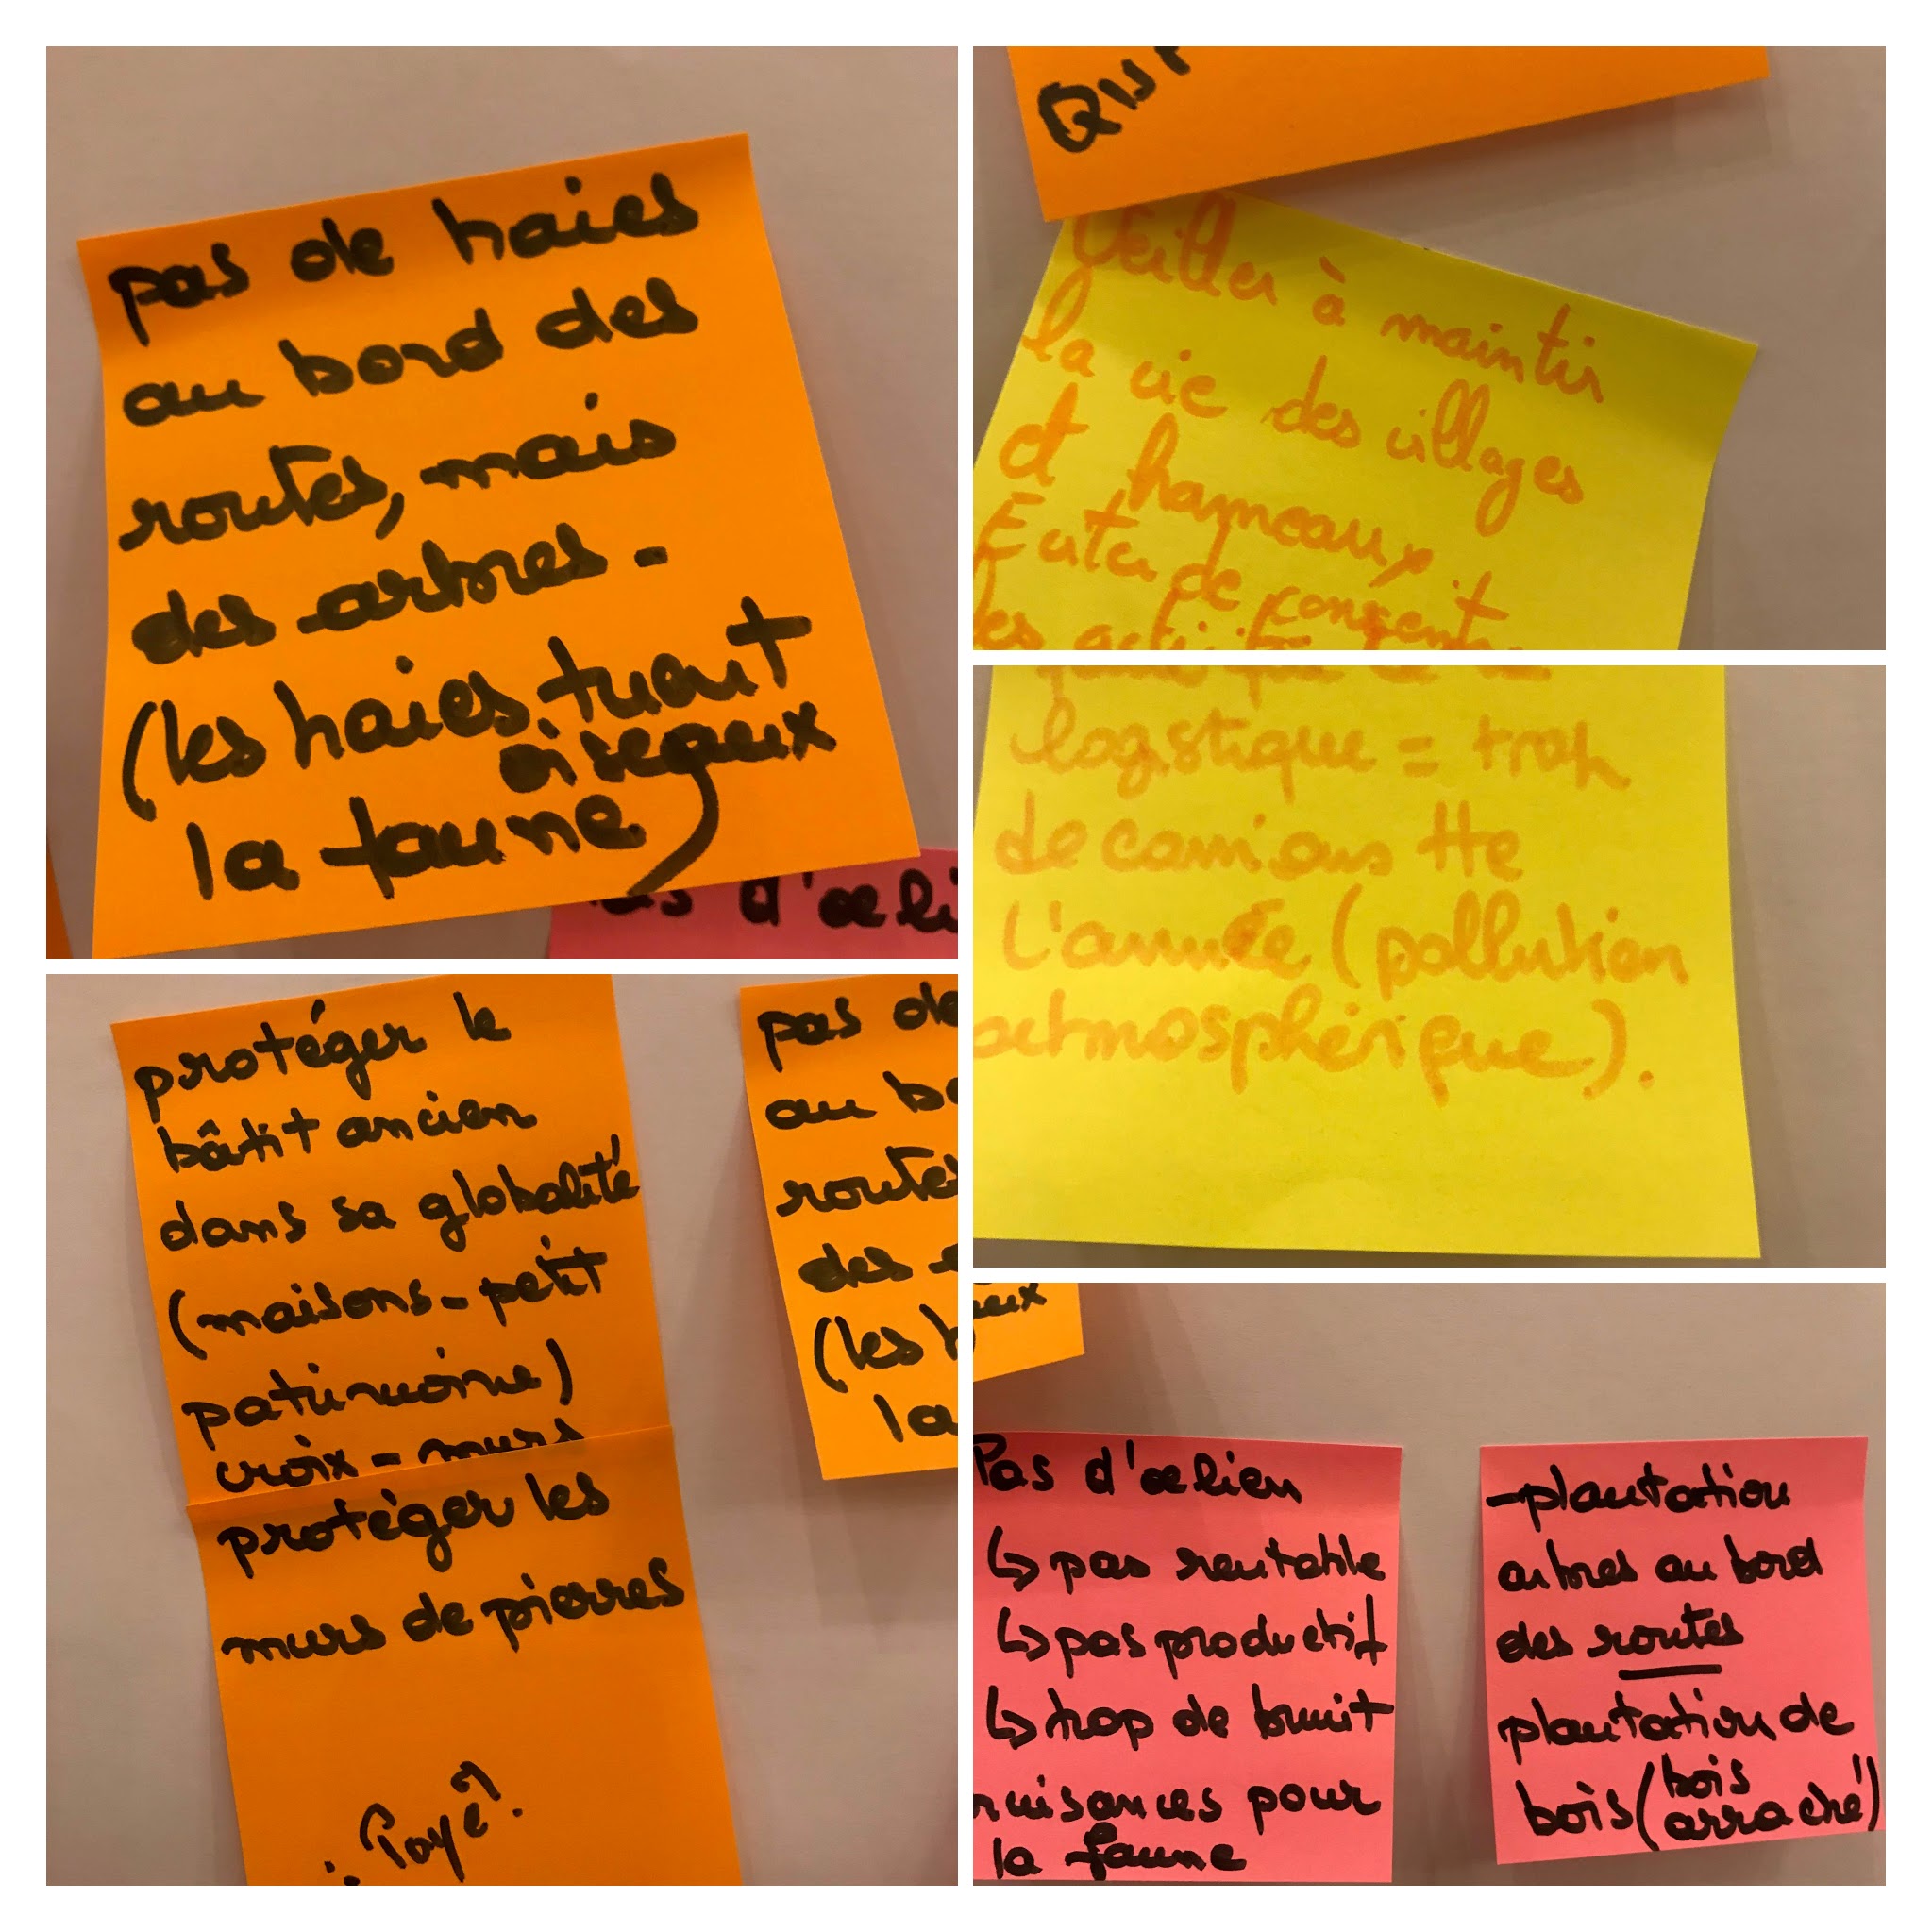 pas de haies
au bord des
routes, mais
des arbres -
(les haies tuent
oiseaux
la faune)
d'œli
Veiller à maintir
la vie des villages
et hameaux
Eviter de
logistique = trop
de camions tte
l'année (pollution
atmosphérique).
protéger le
bâtit ancien
dans sa globalité
(maisons - petit
patrimoine)
croix - murs
protéger les
murs de pierres
pas de
au bo
routes
des
(les h
la
Pas d'œlien
↳ pas rentable
↳ pas productif
↳ trop de bruit
nuisances pour
la faune
- plantation
arbres au bord
des routes
plantation de
bois (bois
arraché)